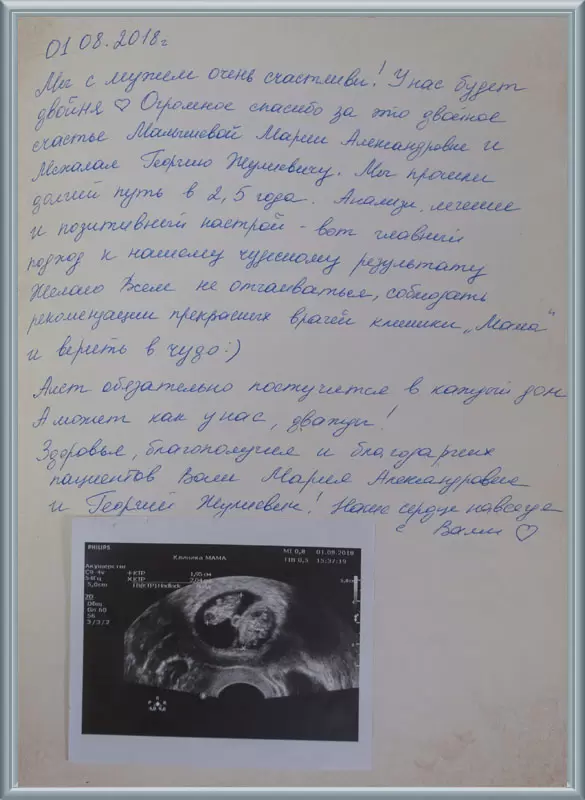 01 08.2018г
Мы с мужем очень счастливы! У нас будет
двойня ♡ Огромное спасибо за это двойное
счастье Малышевой Марии Александровне и
Мскалал Георгию Жулиевичу. Мы прошли
долгий путь в 2,5 года. Анализы, лечение
и позитивный настрой - вот главный
подход к нашему чудесному результату
Желаю Всем не отчаиваться, соблюдать
рекомендации прекрасных врачей клиники „Мама"
и верить в чудо:)
Аист обязательно постучится в каждый дом
А может как у нас, дважды!
Здоровья, благополучия и благодарных
пациентов Вам Мария Александровна
и Георгий Жулиевич! Наше сердце навсегда
с Вами ♡
PHILIPS
Клиника МАМА
MI 0,8 01.08.2018
TIB 0,5 13:37:19
Акушерство
C9-4v
5,0cm
+КТР 1,95 см
×КТР
2D
Общ
56
3/3/2